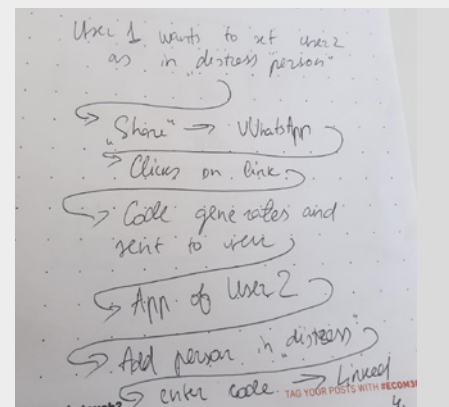 User 1 wants to set user2
as in "distress person"
"Share" → WhatsApp
Clicks on link
Code generates and
sent to user
App of User 2
Add person in "distress"
enter code → Linked
TAG YOUR POSTS WITH #ECOM
4.